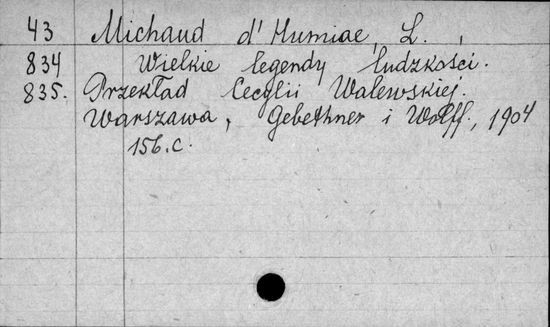 43 Michaud d'Humiac, L.
834 Wielkie legendy ludzkości.
835. Przekład Cecylii Walewskiej.
Warszawa, Gebethner i Wolff, 1904
156.c.